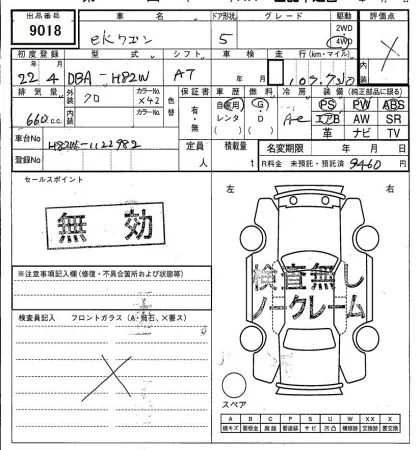 出品番号 車名 ドア形状 グレード 駆動 評価点
9018 ekワゴン 5 2WD 4WD X
初度登録 型式 シフト 車検 走行(km・マイル)
22年4月 DBA-H82W AT 年 月
排気量 外装 クロ カラーNo. X42 色替 保証書 車歴 燃料 冷房 装備(純正部品に限る)
660c.c. 内装 カラーNo. 有・無 自家用 レンタ G D AC PS PW ABS
エアB AW SR
革 ナビ TV
車台No H82W-1122982 定員 人 積載量 t 名変期限 年 月 日
登録No R料金 未預託・預託済 9460円
セールスポイント 左 右
無効
検査無し
ノークレーム
※注意事項記入欄(修復・不具合箇所および状態等)
検査員記入 フロントガラス(A・飛石、X要ス)
スペア
A B C P S U W X XX X